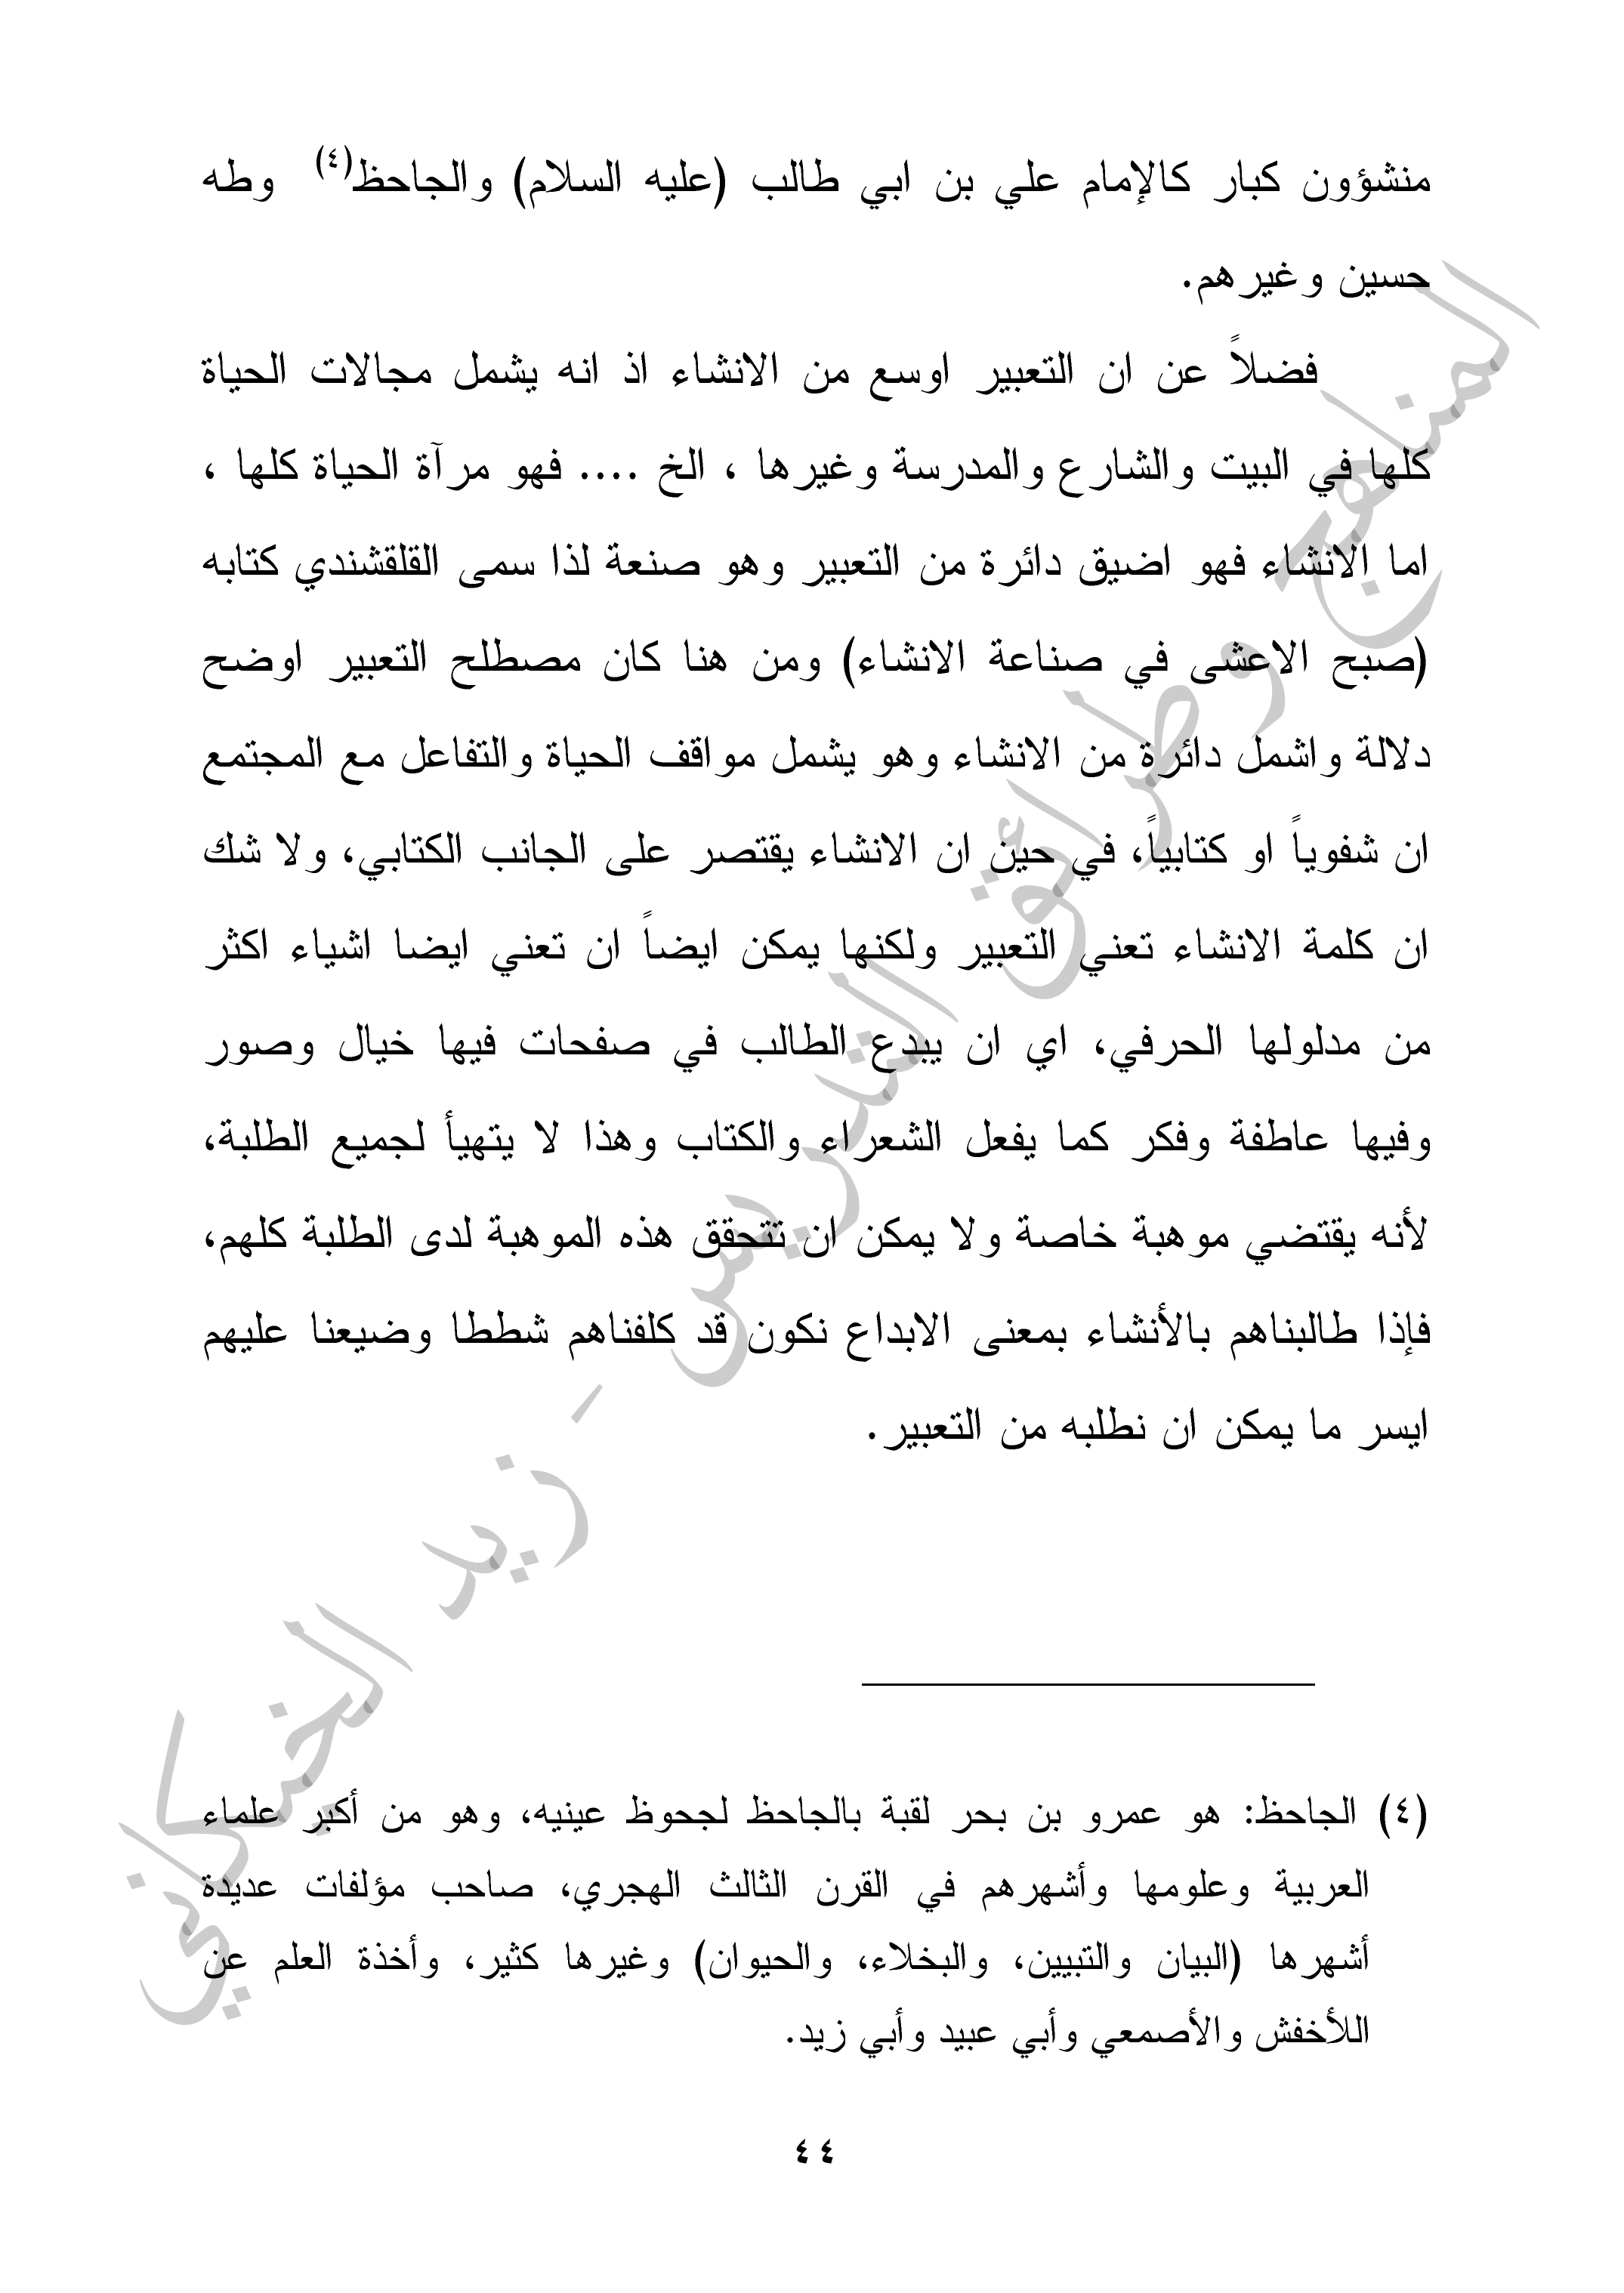 منشؤون كبار كالإمام علي بن ابي طالب (عليه السلام) والجاحظ(٤) وطه
حسين وغيرهم.
فضلاً عن ان التعبير اوسع من الانشاء اذ انه يشمل مجالات الحياة
كلها في البيت والشارع والمدرسة وغيرها ، الخ .... فهو مرآة الحياة كلها ،
اما الانشاء فهو اضيق دائرة من التعبير وهو صنعة لذا سمى القلقشندي كتابه
(صبح الاعشى في صناعة الانشاء) ومن هنا كان مصطلح التعبير اوضح
دلالة واشمل دائرة من الانشاء وهو يشمل مواقف الحياة والتفاعل مع المجتمع
ان شفوياً او كتابياً، في حين ان الانشاء يقتصر على الجانب الكتابي، ولا شك
ان كلمة الانشاء تعني التعبير ولكنها يمكن ايضاً ان تعني ايضا اشياء اكثر
من مدلولها الحرفي، اي ان يبدع الطالب في صفحات فيها خيال وصور
وفيها عاطفة وفكر كما يفعل الشعراء والكتاب وهذا لا يتهيأ لجميع الطلبة،
لأنه يقتضي موهبة خاصة ولا يمكن ان تتحقق هذه الموهبة لدى الطلبة كلهم،
فإذا طالبناهم بالأنشاء بمعنى الابداع نكون قد كلفناهم شططا وضيعنا عليهم
ايسر ما يمكن ان نطلبه من التعبير.
(٤) الجاحظ: هو عمرو بن بحر لقبة بالجاحظ لجحوظ عينيه، وهو من أكبر علماء
العربية وعلومها وأشهرهم في القرن الثالث الهجري، صاحب مؤلفات عديدة
أشهرها (البيان والتبيين، والبخلاء، والحيوان) وغيرها كثير، وأخذة العلم عن
اللأخفش والأصمعي وأبي عبيد وأبي زيد.
٤٤
المناهج وطرائق التدريس - زيد الخيكاني